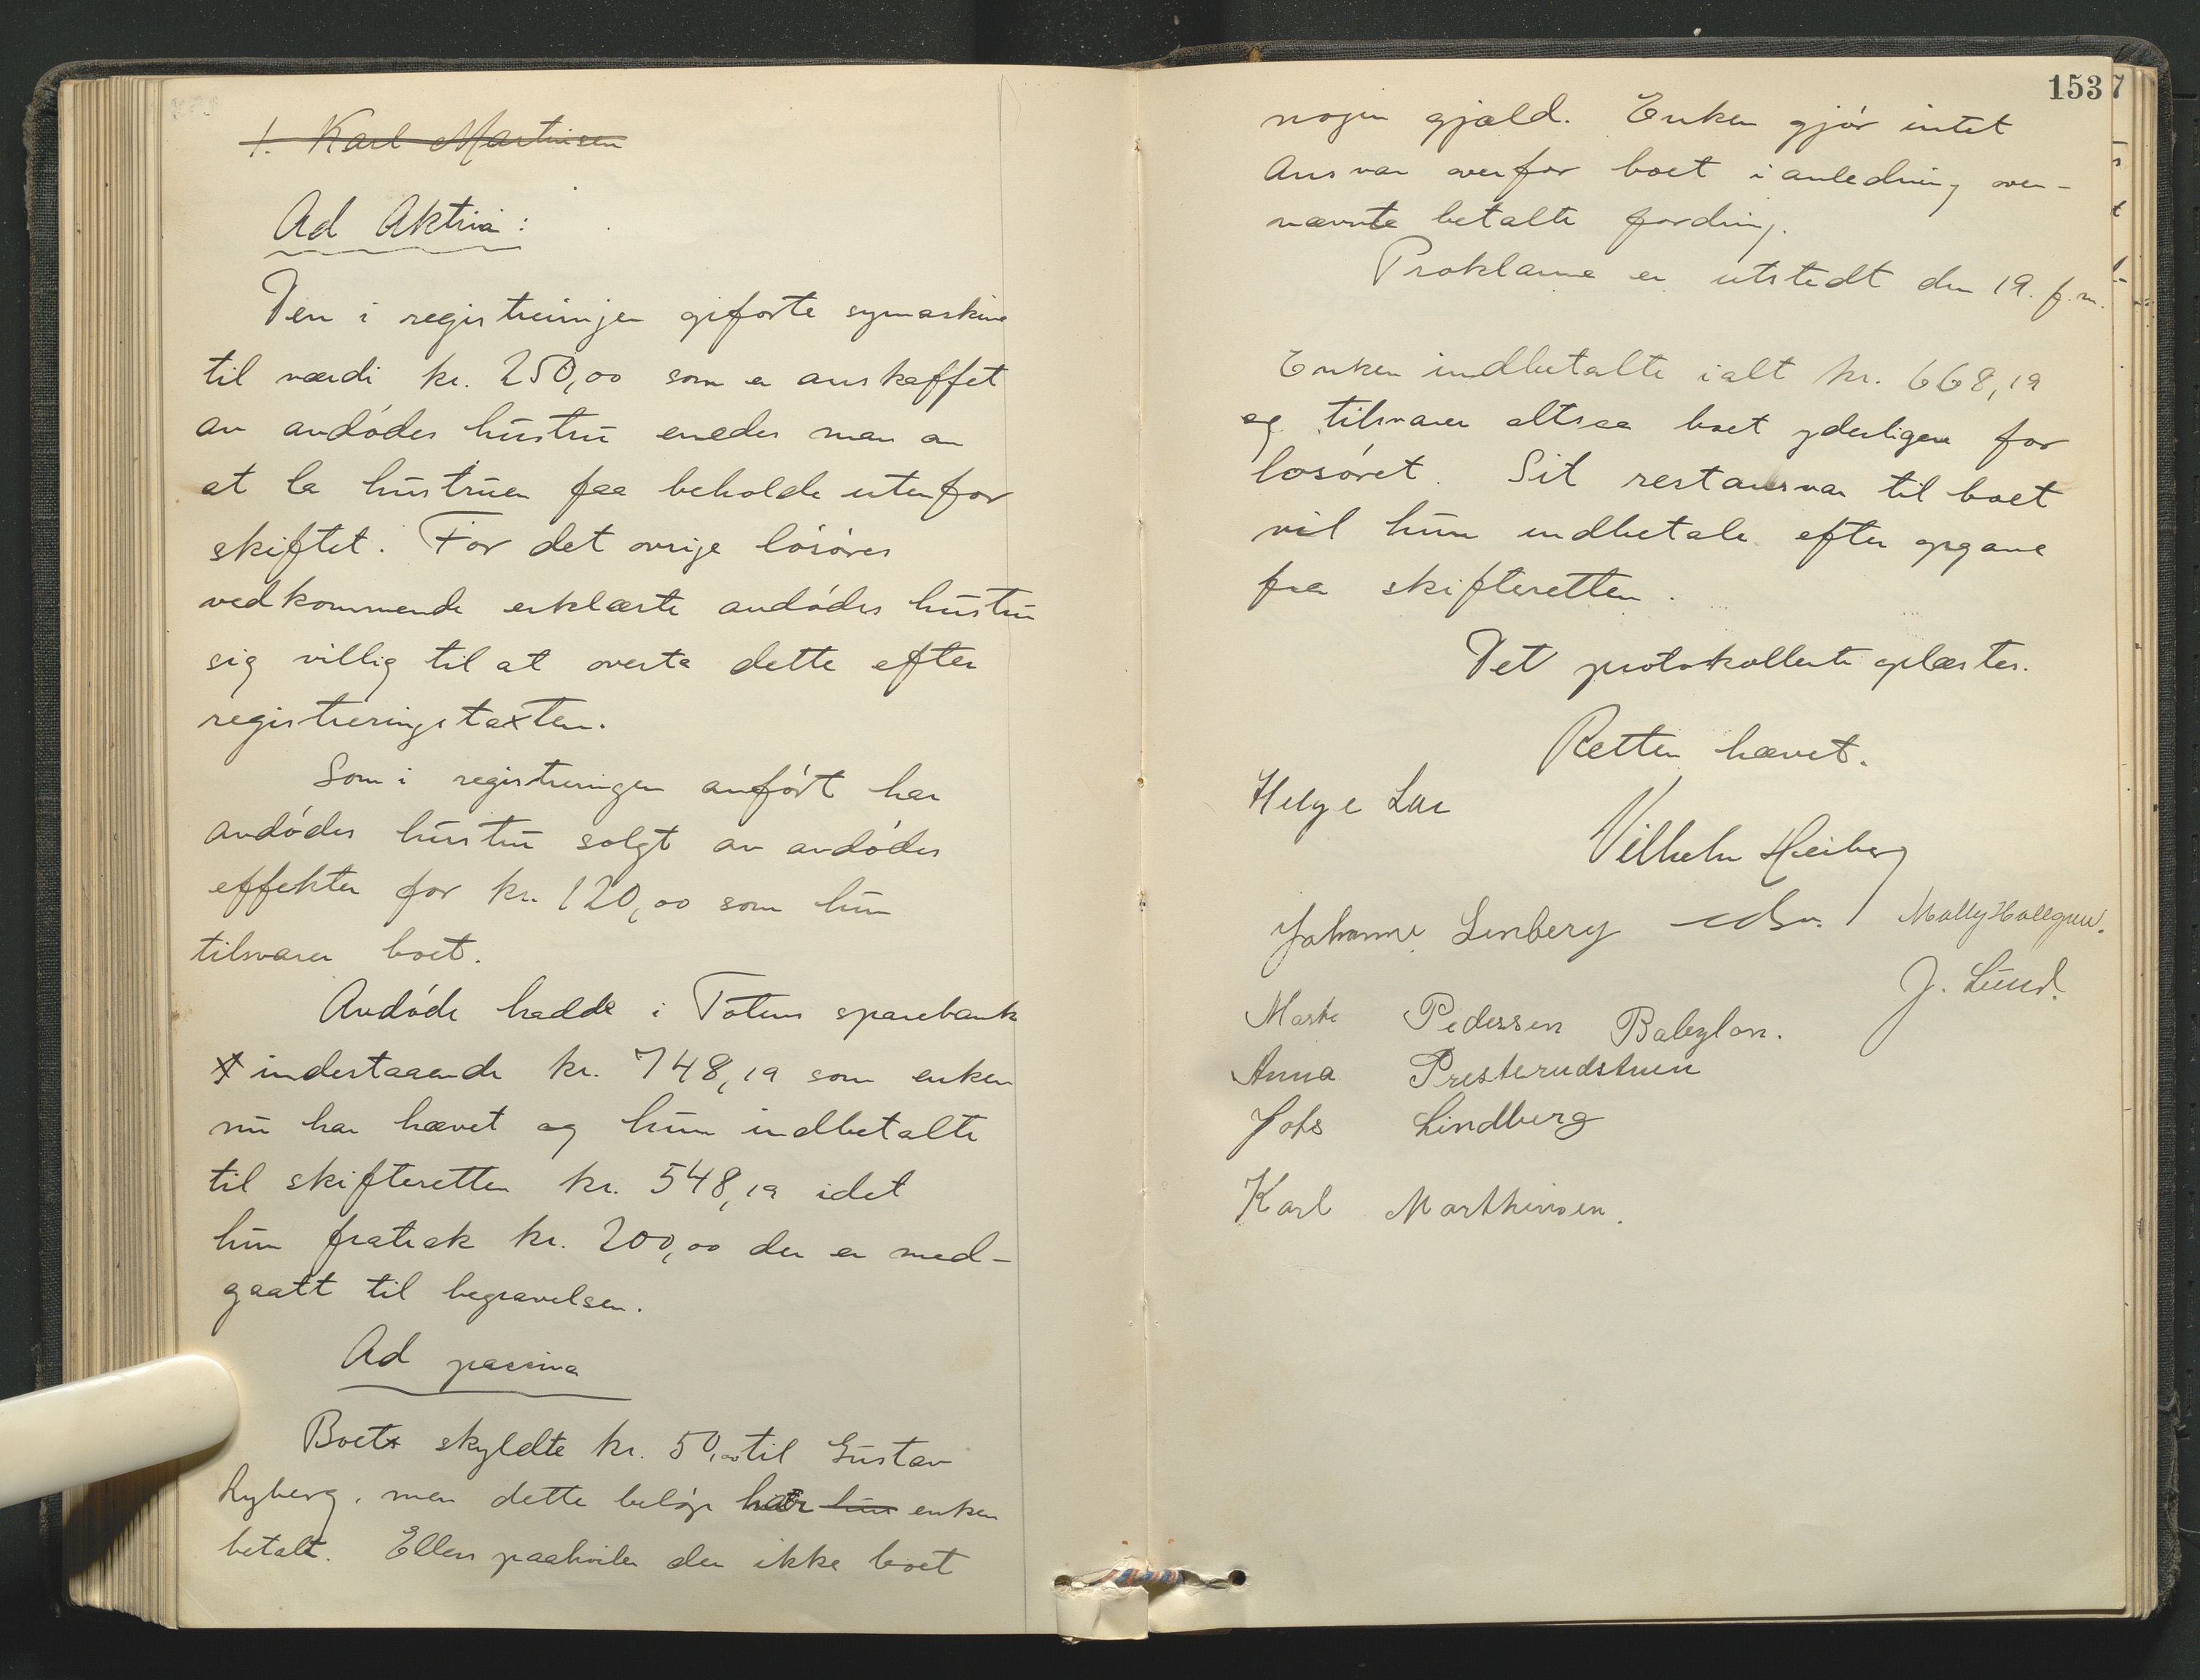 1. Karl Martinsen
Ad Aktiva:
Den i registreringen opførte symaskine
til værdi kr. 250,00 som er anskaffet
av avdødes hustru enedes man om
at la hustruen faa beholde utenfor
skiftet. For det øvrige løsøres
vedkommende erklærte avdødes hustru
sig villig til at overta dette efter
registreringstaxten.
Som i registreringen anført har
avdødes hustru solgt av avdødes
effekter for kr. 120,00 som hun
tilsvarer boet.
Avdøde hadde i Totens sparebank
indestaaende kr. 748,19 som enken
nu har hævet og hun indbetalte
til skifteretten kr. 548,19 idet
hun fratrak kr. 200,00 der er med-
gaatt til begravelsen.
Ad passiva
Boet skyldte kr. 50,00 til Gustav
Lyberg, men dette beløp har hun enken
betalt. Ellers paahviler der ikke boet
153
nogen gjæld. Enken gjør intet
Ansvar overfor boet i anledning oven-
nævnte betalte fordring.
Proklama er utstedt den 19. f.m.
Enken indbetalte ialt kr. 668,19
og tilsvarer altsaa boet yderligere for
løsøret. Sit restansvar til boet
vil hun indbetale efter opgave
fra skifteretten.
Det protokollerte oplæstes.
Retten hævet.
Helge Lie
Vilhelm Heiberg
Johanne Linberg
Molly Hallgren.
J. Lund.
Marte Pedersen Babylon.
Anna Presterudstuen
Johs Lindberg
Karl Marthinsen.